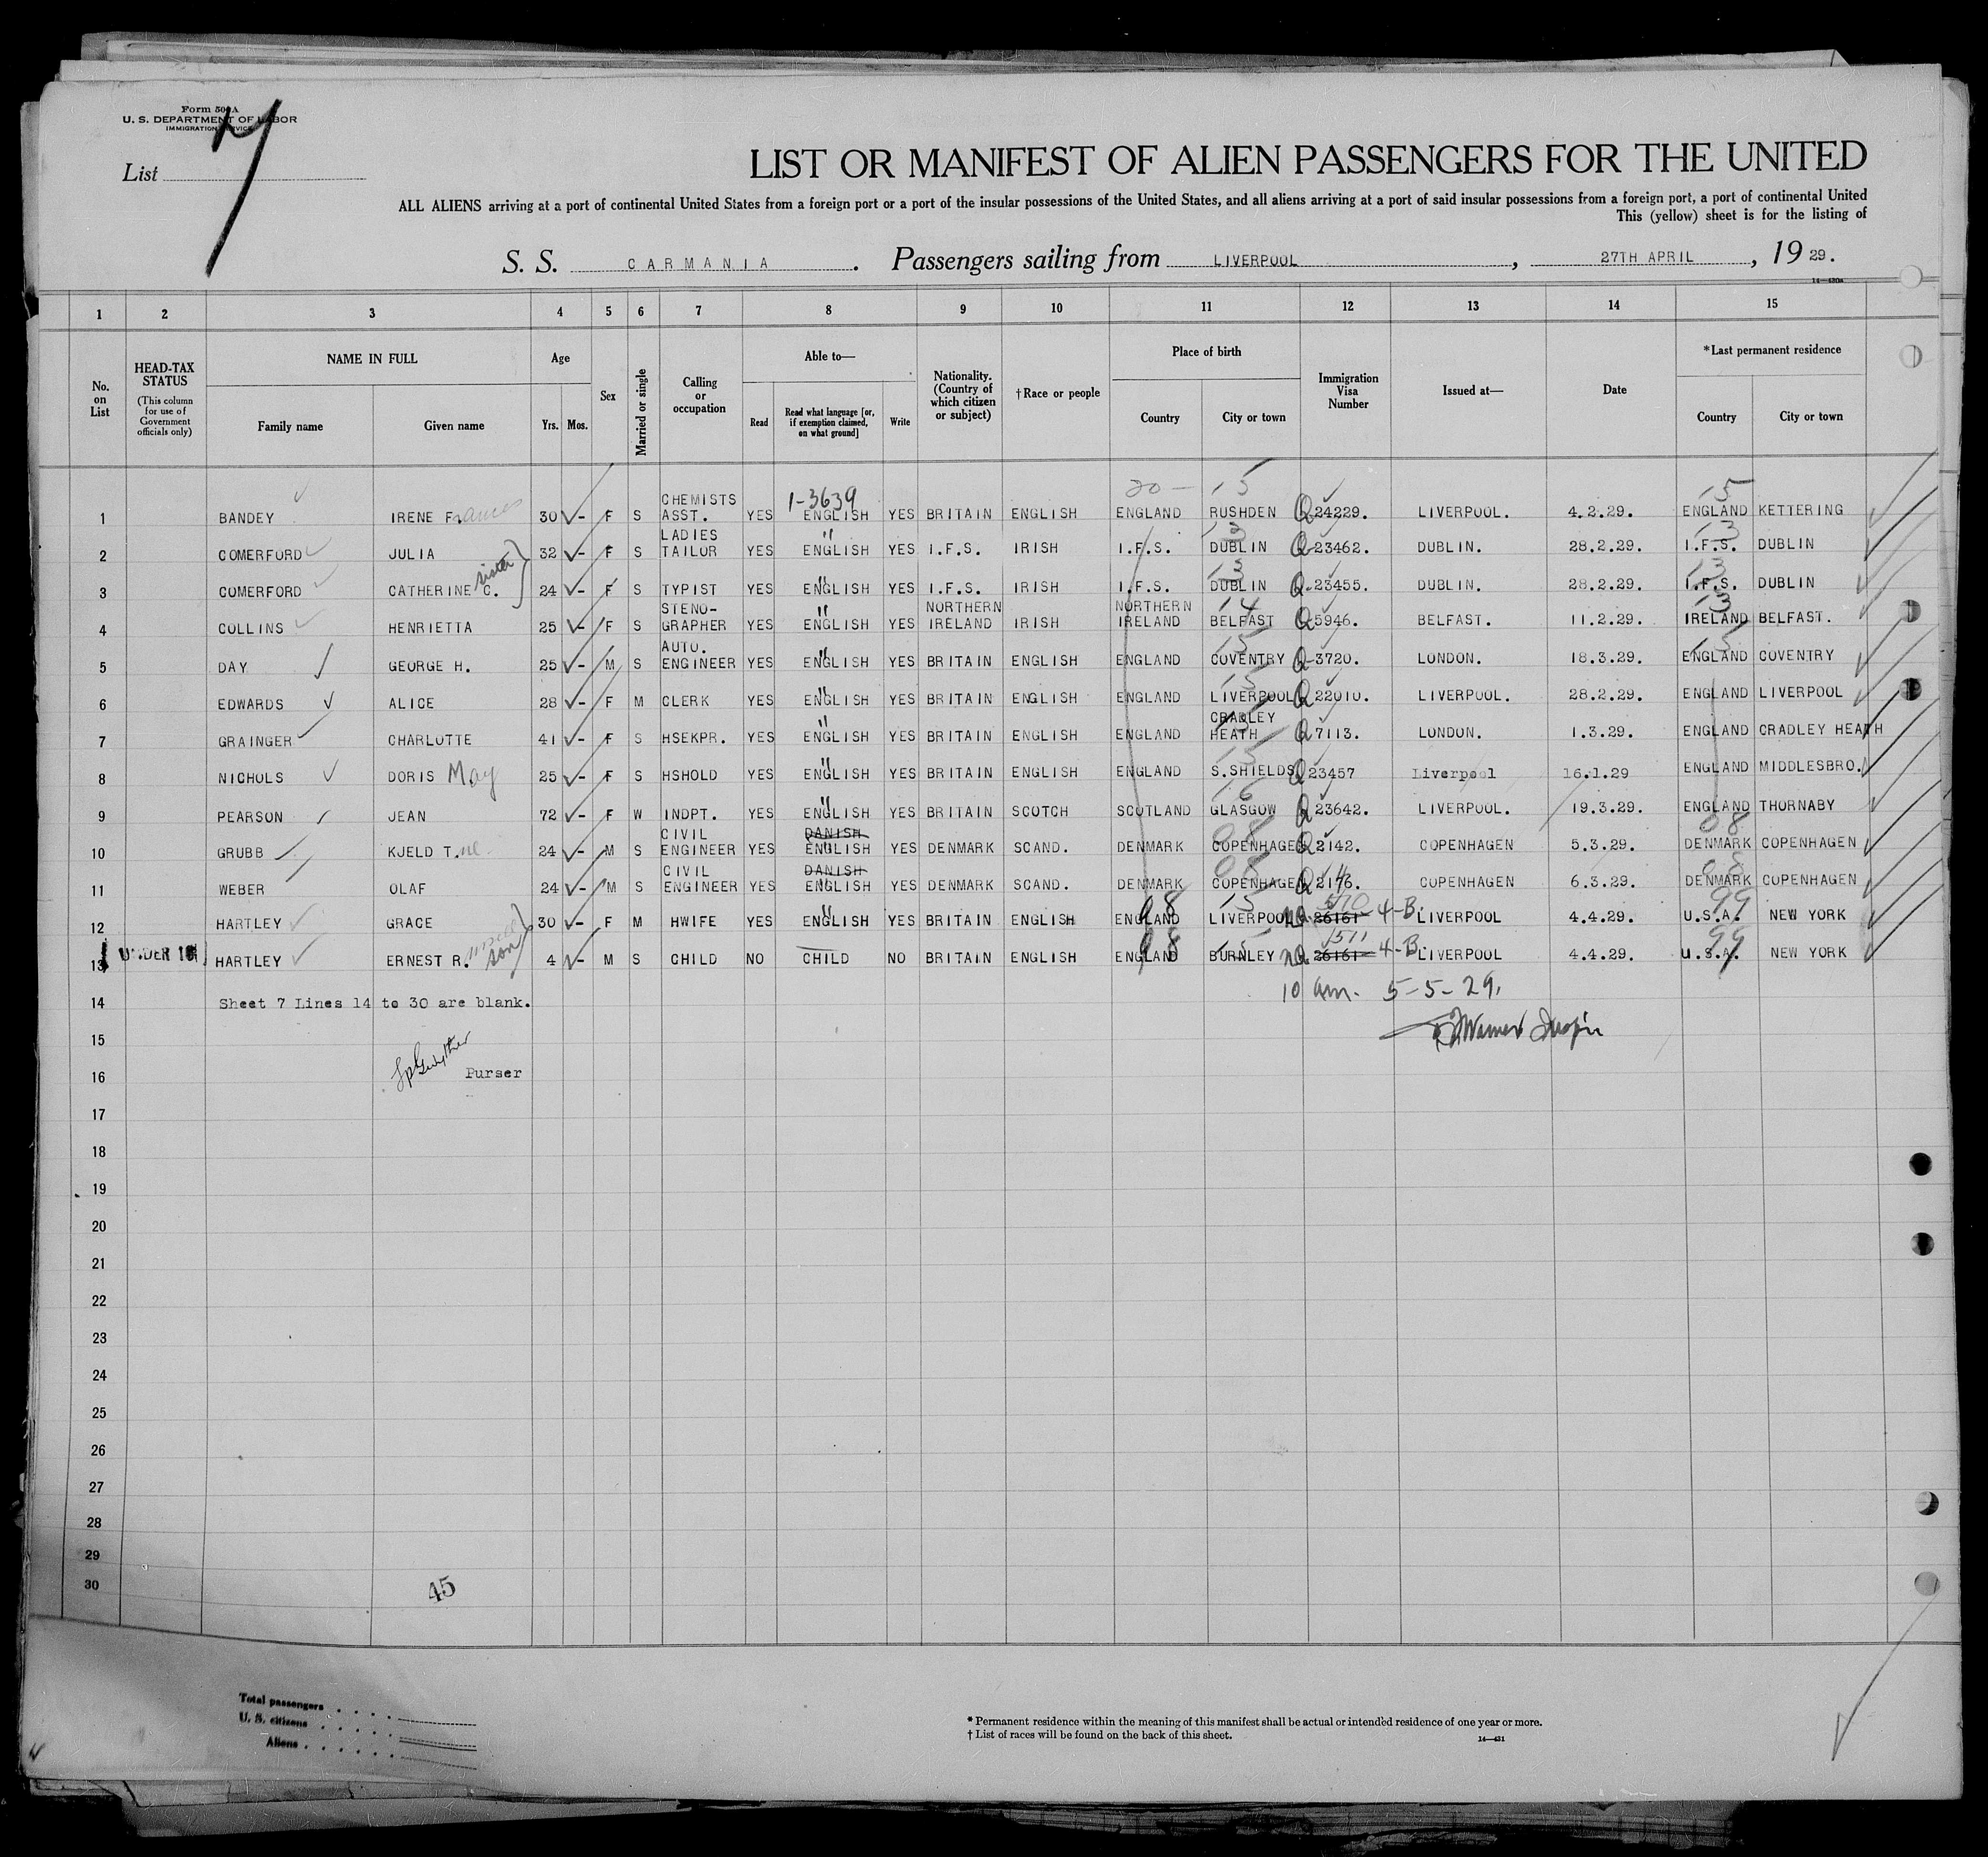 Form 500A
U. S. DEPARTMENT OF LABOR
IMMIGRATION SERVICE
List 7
LIST OR MANIFEST OF ALIEN PASSENGERS FOR THE UNITED
ALL ALIENS arriving at a port of continental United States from a foreign port or a port of the insular possessions of the United States, and all aliens arriving at a port of said insular possessions from a foreign port, a port of continental United
This (yellow) sheet is for the listing of
S. S. CARMANIA. Passengers sailing from LIVERPOOL, 27TH APRIL, 19 29.
1 2 3 4 5 6 7 8 9 10 11 12 13 14 15
No. on List
HEAD-TAX STATUS (This column for use of Government officials only)
NAME IN FULL Family name Given name
Age Yrs. Mos.
Sex
Married or single
Calling or occupation
Able to— Read Read what language [or, if exemption claimed, on what ground] Write
Nationality. (Country of which citizen or subject)
†Race or people
Place of birth Country City or town
Immigration Visa Number
Issued at—
Date
*Last permanent residence Country City or town
20 — 15 15
1 BANDEY IRENE F. 30 - F S CHEMISTS ASST. YES 1-3639 ENGLISH YES BRITAIN ENGLISH ENGLAND RUSHDEN Q 24229. LIVERPOOL. 4.2.29. ENGLAND KETTERING
2 COMERFORD JULIA 32 - F S LADIES TAILOR YES " ENGLISH YES I.F.S. IRISH I.F.S. 13 DUBLIN Q 23462. DUBLIN. 28.2.29. 13 I.F.S. DUBLIN
3 COMERFORD CATHERINE C. sister 24 - F S TYPIST YES " ENGLISH YES I.F.S. IRISH I.F.S. 13 DUBLIN Q 23455. DUBLIN. 28.2.29. 13 I.F.S. DUBLIN
4 COLLINS HENRIETTA 25 - F S STENO-GRAPHER YES " ENGLISH YES NORTHERN IRELAND IRISH NORTHERN IRELAND 14 BELFAST Q 5946. BELFAST. 11.2.29. 13 IRELAND BELFAST.
5 DAY GEORGE H. 25 - M S AUTO. ENGINEER YES " ENGLISH YES BRITAIN ENGLISH ENGLAND 15 COVENTRY Q 3720. LONDON. 18.3.29. 15 ENGLAND COVENTRY
6 EDWARDS ALICE 28 - F M CLERK YES " ENGLISH YES BRITAIN ENGLISH ENGLAND 15 LIVERPOOL Q 22010. LIVERPOOL. 28.2.29. ENGLAND LIVERPOOL
7 GRAINGER CHARLOTTE 41 - F S HSEKPR. YES " ENGLISH YES BRITAIN ENGLISH ENGLAND CRADLEY HEATH 15 Q 7113. LONDON. 1.3.29. ENGLAND CRADLEY HEATH
8 NICHOLS DORIS May 25 - F S HSHOLD YES " ENGLISH YES BRITAIN ENGLISH ENGLAND 15 S.SHIELDS Q 23457 Liverpool 16.1.29 ENGLAND MIDDLESBRO.
9 PEARSON JEAN 72 - F W INDPT. YES " ENGLISH YES BRITAIN SCOTCH SCOTLAND 16 GLASGOW Q 23642. LIVERPOOL. 19.3.29. ENGLAND THORNABY
10 GRUBB KJELD T. 24 - M S CIVIL ENGINEER YES DANISH ENGLISH YES DENMARK SCAND. DENMARK 08 COPENHAGEN Q 2142. COPENHAGEN 5.3.29. 08 DENMARK COPENHAGEN
11 WEBER OLAF 24 - M S CIVIL ENGINEER YES DANISH ENGLISH YES DENMARK SCAND. DENMARK 08 COPENHAGEN Q 2176. COPENHAGEN 6.3.29. 08 DENMARK COPENHAGEN
12 HARTLEY GRACE 30 - F M HWIFE YES " ENGLISH YES BRITAIN ENGLISH 98 ENGLAND 15 LIVERPOOL NQ 26161 4-B. LIVERPOOL 4.4.29. 99 U.S.A. NEW YORK
13 UNDER 16 HARTLEY ERNEST R. son 4 - M S CHILD NO CHILD NO BRITAIN ENGLISH 98 ENGLAND 15 BURNLEY NQ 1511 26161 4-B. LIVERPOOL 4.4.29. 99 U.S.A. NEW YORK
14 Sheet 7 Lines 14 to 30 are blank. 10 am. 5-5-29.
15
16 Purser
17
18
19
20
21
22
23
24
25
26
27
28
29
30
45
Total passengers
U. S. citizens
Aliens
* Permanent residence within the meaning of this manifest shall be actual or intended residence of one year or more.
† List of races will be found on the back of this sheet.
14—431